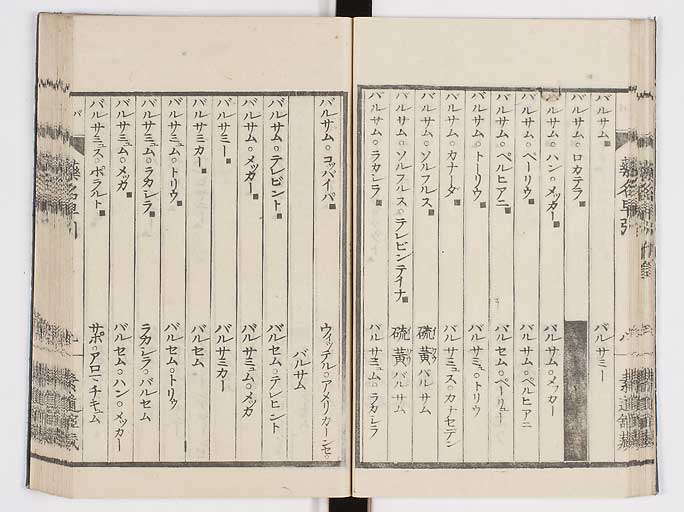 バルサム バルサミー
バルサム。ロカテラ
バルサム。ハン。メッカー バルサム。メッカー
バルサム。ペーリウ バルサム。ペルヒアニ
バルサム。ペルヒアニ バルセム。ペーリュー
バルサム。トーリウ バルサミュ。トリウ
バルサム。カナーダ バルサミュス。カナセデン
バルサム。ソルフルス 硫黄バルサム
バルサム。ソルフルス。テレビンテイナ 硫黄バルサム
バルサム。ラカシラ バルサミュム。ラカシラ
バルサム。コッパイバ ウィッテル。アメリカーンセ。
バルサム
バルサム。テレビント バルセム。テレビント
バルサム。メッカー バルサミュム。メッカ
バルサミー バルサミカー
バルサミカー バルセム
バルサミュム。トリウ バルセム。トリウ
バルサミュム。ラカシラ ラカシラ。バルセム
バルサミュム。メッカ バルセム。ハン。メッカー
バルサミュス。ポラルト サポ。アロマチキュム
藥名早引